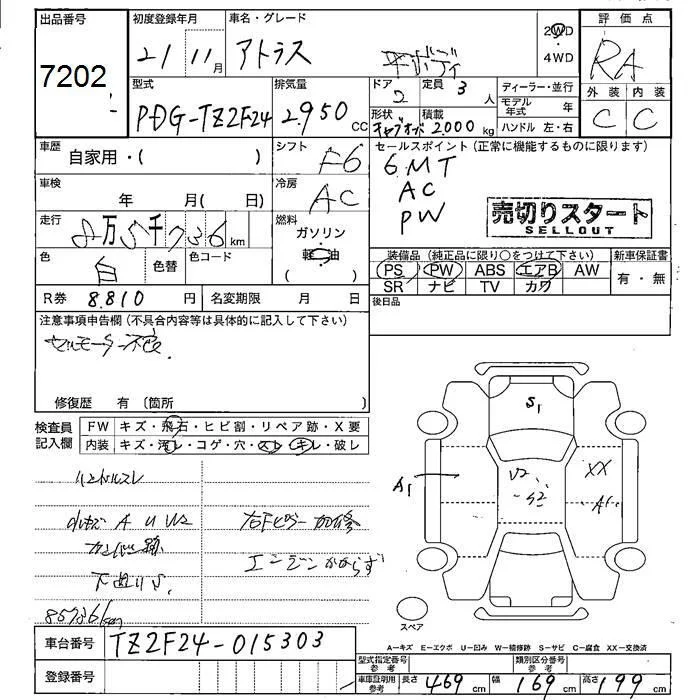 出品番号 初度登録年月 車名・グレード 評価点
7202 21 11月 アトラス 平ボディ 2WD・4WD RA
型式 排気量 ドア 定員 ディーラー・並行 外装 内装
PDG-TZ2F24 2.950CC 2 3人 モデル年式 年 C C
形状 積載 ハンドル 左・右
キャブオーバ 2.000kg
車歴 自家用・( ) シフト F6 セールスポイント(正常に機能するものに限ります)
6.MT
車検 年 月( 日) 冷房 AC AC
PW
売切りスタート
SELLOUT
走行 8万5千736km 燃料 ガソリン・軽油
装備品(純品に限り○をつけて下さい) 新車保証書
色 白 色替 色コード PS PW ABS エアB AW 有・無
SR ナビ TV カワ
R券 8.810円 名変期限 月 日 後日品
注意事項申告欄(不具合内容等は具体的に記入して下さい)
セルモーター不良
修復歴 有(箇所 )
検査員記入欄 FW キズ・飛石・ヒビ割・リペア跡・X要
内装 キズ・汚レ・コゲ・穴・スレ・キレ・破レ
ハンドルスレ
A U W2 右Fピラー加修
エンジンかからず
下廻りS.
85736km
S1
A1 U2 S2 XX A1
スペア
A-キズ E-エクボ U-凹み W-補修跡 S-サビ C-腐食 XX-交換済
車台番号 TZ2F24-015303
型式指定番号参考 類別区分番号参考
登録番号 車庫証明用参考 長さ 469cm 幅 169cm 高さ 199cm